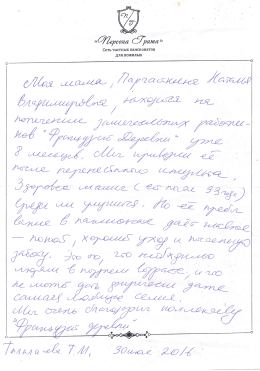 «Персона Грата»
Сеть частных пансионатов
для пожилых
Моя мама, Наталья
Владимировна, находится на
попечении замечательных работни-
ков "Французской Деревни" уже
8 месяцев. Мы привезли её
после перенесённого инсульта.
Здоровье мамы (ей после 93 года)
вряд ли улучшится. Но её пребы
вание в пансионате даёт главное
— покой, хороший уход и
заботу. Это то, что необходимо
людям в позднем возрасте, и что
не может дать зачастую даже
самая любящая семья.
Мы очень благодарны коллективу
"Французской деревни"
Т.М, 30 мая 2016